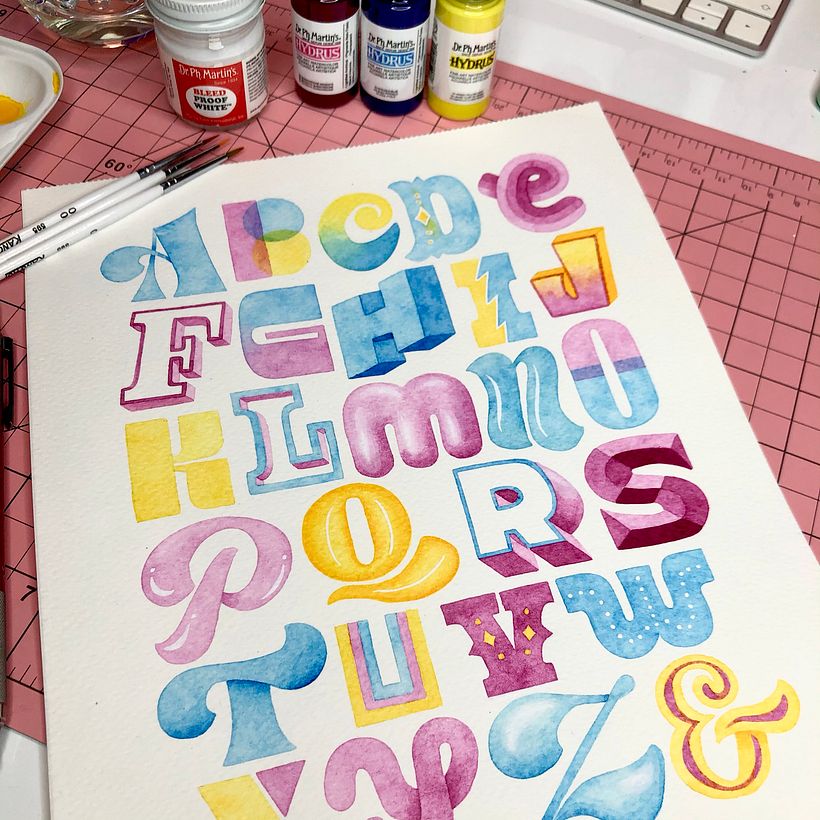 Dr. Ph. Martin's.
BLEED
PROOF
WHITE™
Dr. Ph. Martin's.
HYDRUS
Dr. Ph. Martin's.
HYDRUS
Dr. Ph. Martin's.
HYDRUS
60°
00
A B C D e
F G H I J
K L m n O
P Q R S
T U V W
X Y Z &
7